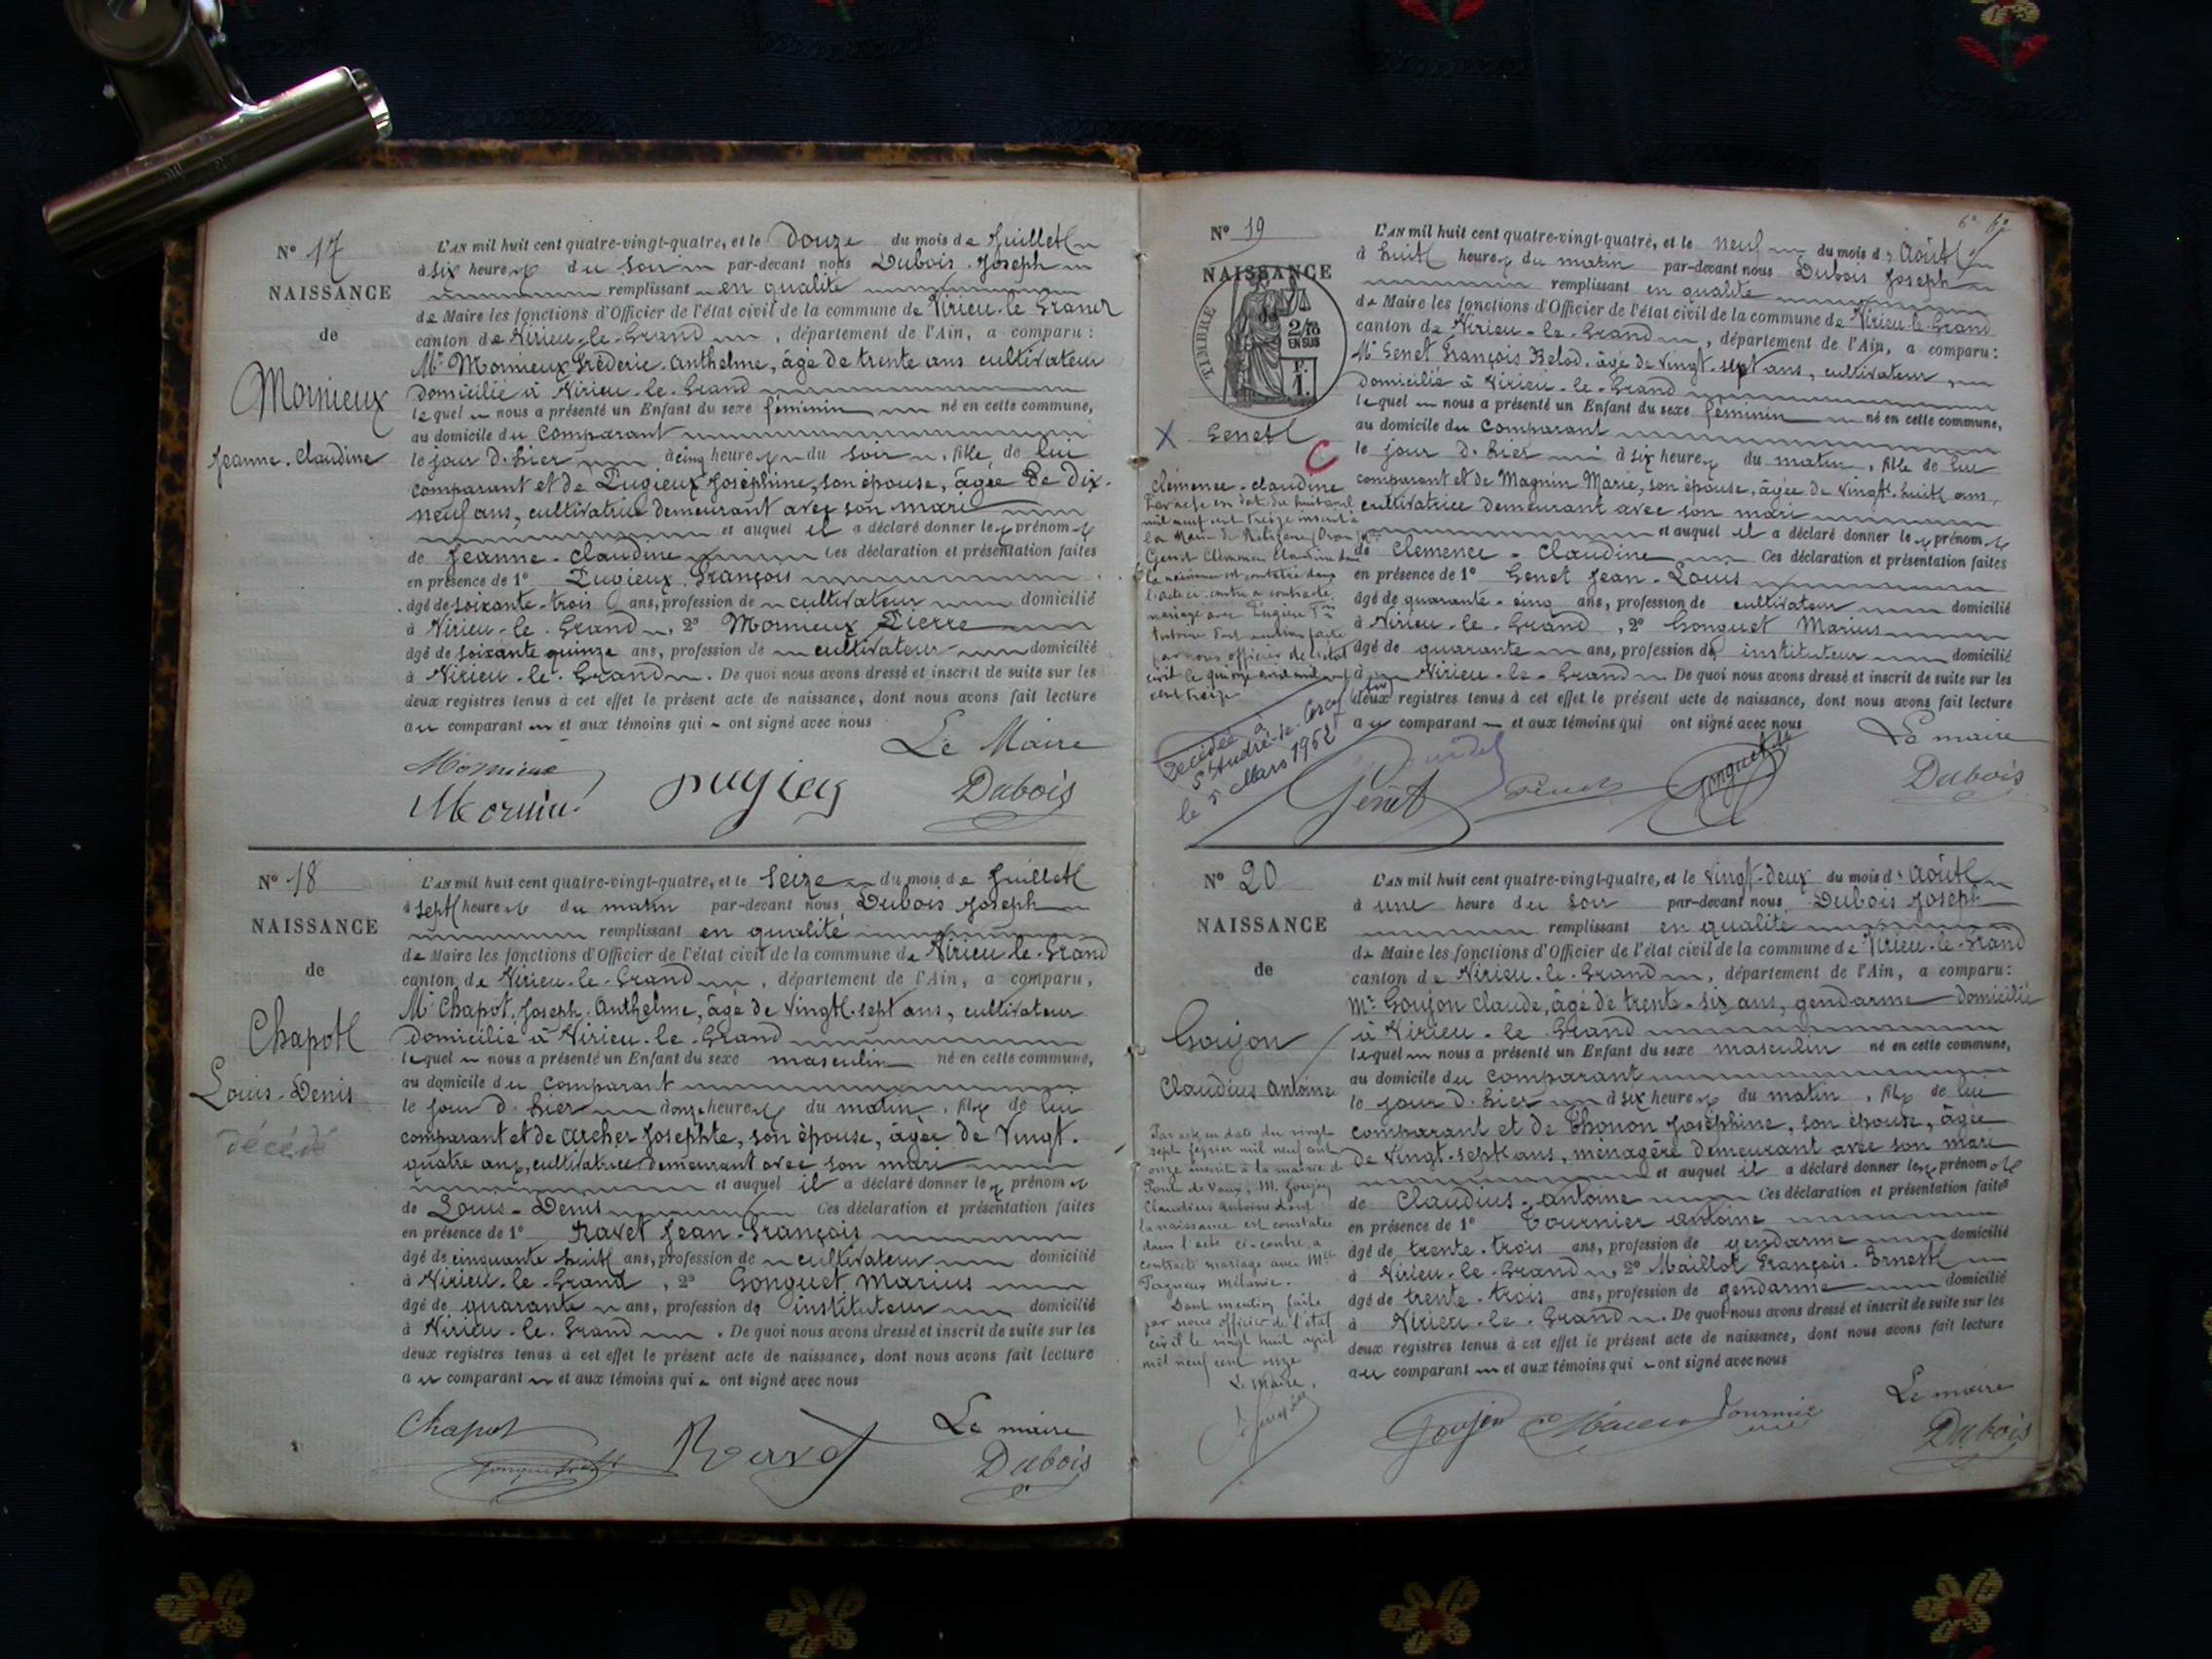 N° 17
NAISSANCE
de
Mornieux
Jeanne-Claudine
L'AN mil huit cent quatre-vingt-quatre, et le Douze du mois de Juillet
à six heures du soir par-devant nous Dubois Joseph
remplissant en qualité
de Maire les fonctions d'Officier de l'état civil de la commune de Virieu-le-Grand
canton de Virieu-le-Grand, département de l'Ain, a comparu :
Mr Mornieux Fréderic Anthelme, âgé de trente ans cultivateur
domicilié à Virieu-le-Grand
lequel nous a présenté un Enfant du sexe féminin né en cette commune,
au domicile du comparant
le jour d'hier à cinq heures du soir, fille de lui
comparant et de Pugieux Joséphine, son épouse, âgée de dix-
neuf ans, cultivatrice demeurant avec son mari
et auquel il a déclaré donner les prénoms
de Jeanne-Claudine Ces déclaration et présentation faites
en présence de 1° Pugieux François
âgé de soixante-trois ans, profession de cultivateur domicilié
à Virieu-le-Grand, 2° Mornieux Pierre
âgé de soixante quinze ans, profession de cultivateur domicilié
à Virieu-le-Grand. De quoi nous avons dressé et inscrit de suite sur les
deux registres tenus à cet effet le présent acte de naissance, dont nous avons fait lecture
au comparant et aux témoins qui ont signé avec nous
Le Maire
Dubois
N° 18
NAISSANCE
de
Chapot
Louis-Denis
décédé
L'AN mil huit cent quatre-vingt-quatre, et le seize du mois de Juillet
à sept heures du matin par-devant nous Dubois Joseph
remplissant en qualité
de Maire les fonctions d'Officier de l'état civil de la commune de Virieu-le-Grand
canton de Virieu-le-Grand, département de l'Ain, a comparu,
Mr Chapot Joseph Anthelme, âgé de vingt-sept ans, cultivateur
domicilié à Virieu-le-Grand
lequel nous a présenté un Enfant du sexe masculin né en cette commune,
au domicile du comparant
le jour d'hier à onze heures du matin, fils de lui
comparant et de Archer Josephte, son épouse, âgée de vingt-
quatre ans, cultivatrice demeurant avec son mari
et auquel il a déclaré donner les prénoms
de Louis-Denis Ces déclaration et présentation faites
en présence de 1° Ravet Jean-François
âgé de cinquante huit ans, profession de cultivateur domicilié
à Virieu-le-Grand, 2° Gonguet Marius
âgé de quarante ans, profession de instituteur domicilié
à Virieu-le-Grand. De quoi nous avons dressé et inscrit de suite sur les
deux registres tenus à cet effet le présent acte de naissance, dont nous avons fait lecture
au comparant et aux témoins qui ont signé avec nous
Chapot
Ravet
Le maire
Dubois
N° 19
NAISSANCE
TIMBRE
2/10
EN SUS
F.
1.
X Genet
C
Clémence-Claudine
Par acte en date du huit avril
mil neuf cent treize inscrit à
la Mairie de Relizane (Oran) Mlle
Genet Clémence Claudine dont
la naissance est constatée dans
l'acte ci-contre a contracté
mariage avec
Dont mention faite
par nous officier de l'état
civil le quinze avril mil neuf
cent treize
Décédée à
St André-le-
le 5 Mars 1962
L'AN mil huit cent quatre-vingt-quatre, et le neuf du mois d'Août
à huit heures du matin par-devant nous Dubois Joseph
remplissant en qualité
de Maire les fonctions d'Officier de l'état civil de la commune de Virieu-le-Grand
canton de Virieu-le-Grand, département de l'Ain, a comparu :
Mr Genet François, âgé de vingt-sept ans, cultivateur,
domicilié à Virieu-le-Grand
lequel nous a présenté un Enfant du sexe féminin né en cette commune,
au domicile du comparant
le jour d'hier à six heures du matin, fille de lui
comparant et de Magnin Marie, son épouse, âgée de vingt-huit ans,
cultivatrice demeurant avec son mari
et auquel il a déclaré donner les prénoms
de Clemence-Claudine Ces déclaration et présentation faites
en présence de 1° Genet Jean-Louis
âgé de quarante-cinq ans, profession de cultivateur domicilié
à Virieu-le-Grand, 2° Gonguet Marius
âgé de quarante ans, profession de instituteur domicilié
à Virieu-le-Grand De quoi nous avons dressé et inscrit de suite sur les
deux registres tenus à cet effet le présent acte de naissance, dont nous avons fait lecture
au comparant et aux témoins qui ont signé avec nous
Genet
Le maire
Dubois
N° 20
NAISSANCE
de
Goujon
Claudius Antoine
Par acte en date du vingt
sept février mil neuf cent
onze inscrit à la mairie de
Pont de Vaux, M. Goujon
Claudius Antoine dont
la naissance est constatée
dans l'acte ci-contre, a
contracté mariage avec Mlle
Pagneux Mélanie.
Dont mention faite
par nous officier de l'état
civil le vingt huit avril
mil neuf cent onze
Le Maire,
L'AN mil huit cent quatre-vingt-quatre, et le vingt-deux du mois d'Août
à une heure du soir par-devant nous Dubois Joseph
remplissant en qualité
de Maire les fonctions d'Officier de l'état civil de la commune de Virieu-le-Grand
canton de Virieu-le-Grand, département de l'Ain, a comparu :
Mr Goujon Claude, âgé de trente-six ans, gendarme domicilié
à Virieu-le-Grand
lequel nous a présenté un Enfant du sexe masculin né en cette commune,
au domicile du comparant
le jour d'hier à six heures du matin, fils de lui
comparant et de Thonon Joséphine, son épouse, âgée
de vingt-sept ans, ménagère demeurant avec son mari
et auquel il a déclaré donner les prénoms
de Claudius-Antoine Ces déclaration et présentation faites
en présence de 1° Tournier Antoine
âgé de trente-trois ans, profession de gendarme domicilié
à Virieu-le-Grand, 2° Maillot François-Ernest
âgé de trente-trois ans, profession de gendarme domicilié
à Virieu-le-Grand. De quoi nous avons dressé et inscrit de suite sur les
deux registres tenus à cet effet le présent acte de naissance, dont nous avons fait lecture
au comparant et aux témoins qui ont signé avec nous
Goujon Tournier
Le maire
Dubois